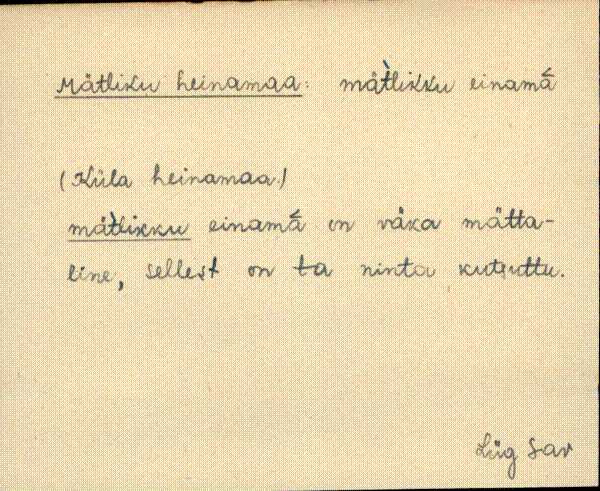 Mätliku heinamaa: mät̀likku einamā̆
(Küla heinamaa.)
mät̀likku einamā̆ on väka mätta-
line, sellest on ta ninta kutsuttu.
Lüg Sav